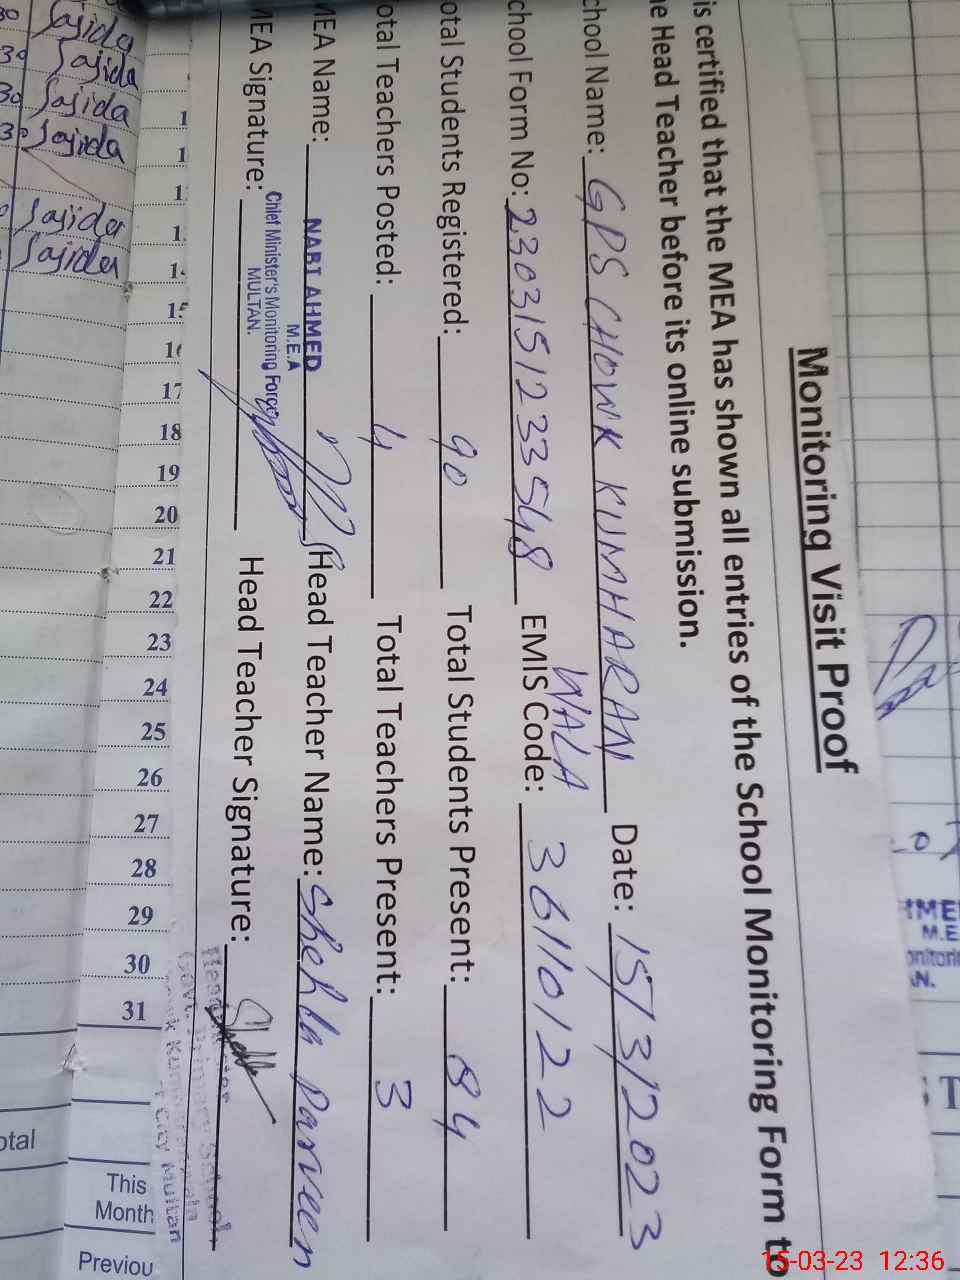 Monitoring Visit Proof
is certified that the MEA has shown all entries of the School Monitoring Form to
e Head Teacher before its online submission.
chool Name: GPS CHOWK KUMHARAN WALA Date: 15/3/2023
chool Form No: 2303151233548 EMIS Code: 36110122
otal Students Registered: 90 Total Students Present: 84
otal Teachers Posted: 4 Total Teachers Present: 3
MEA Name: NABI AHMED Head Teacher Name: Shehla Parveen
M.E.A
Chief Minister's Monitoring Force
MULTAN.
MEA Signature: Head Teacher Signature:
Govt. Primary School
Multan
30 Sajida
30 Sajida
30 Sajida
30 Sajida
Sajida
Sajida
15
16
17
18
19
20
21
22
23
24
25
26
27
28
29
30
31
otal
This
Month
Previou
M.E
15-03-23 12:36